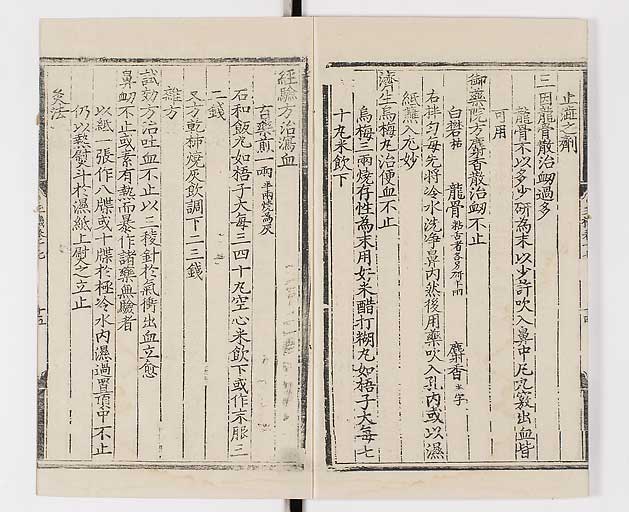 止澁之劑
三因龍骨散治衂過多
龍骨不以多少研為末以少許吹入鼻中凡九竅出血皆
可用
御藥院方麝香散治衂不止
白礬枯 龍骨粘舌者各 麝香字
右拌勻每先將冷水洗淨鼻內然後用藥吹入孔內或以濕
紙蘸入尤妙
濟生烏梅丸治便血不止
烏梅三兩燒存性為末用好米醋打糊丸如梧子大每七
十丸米飲下
經驗方治瀉血
百藥煎一兩半兩燒為灰
石和飯丸如梧子大每三四十丸空心米飲下或作末服三
二錢
又方乾柿燒灰飲調下二三錢
雜方
試効方治吐血不止以三稜針於氣衝出血立愈
鼻衂不止或素有熱而暴作諸藥無驗者
以紙一張作八牒或十牒於極冷水內濕過置頂中不止
仍以熱熨斗於濕紙上熨之立止
灸法